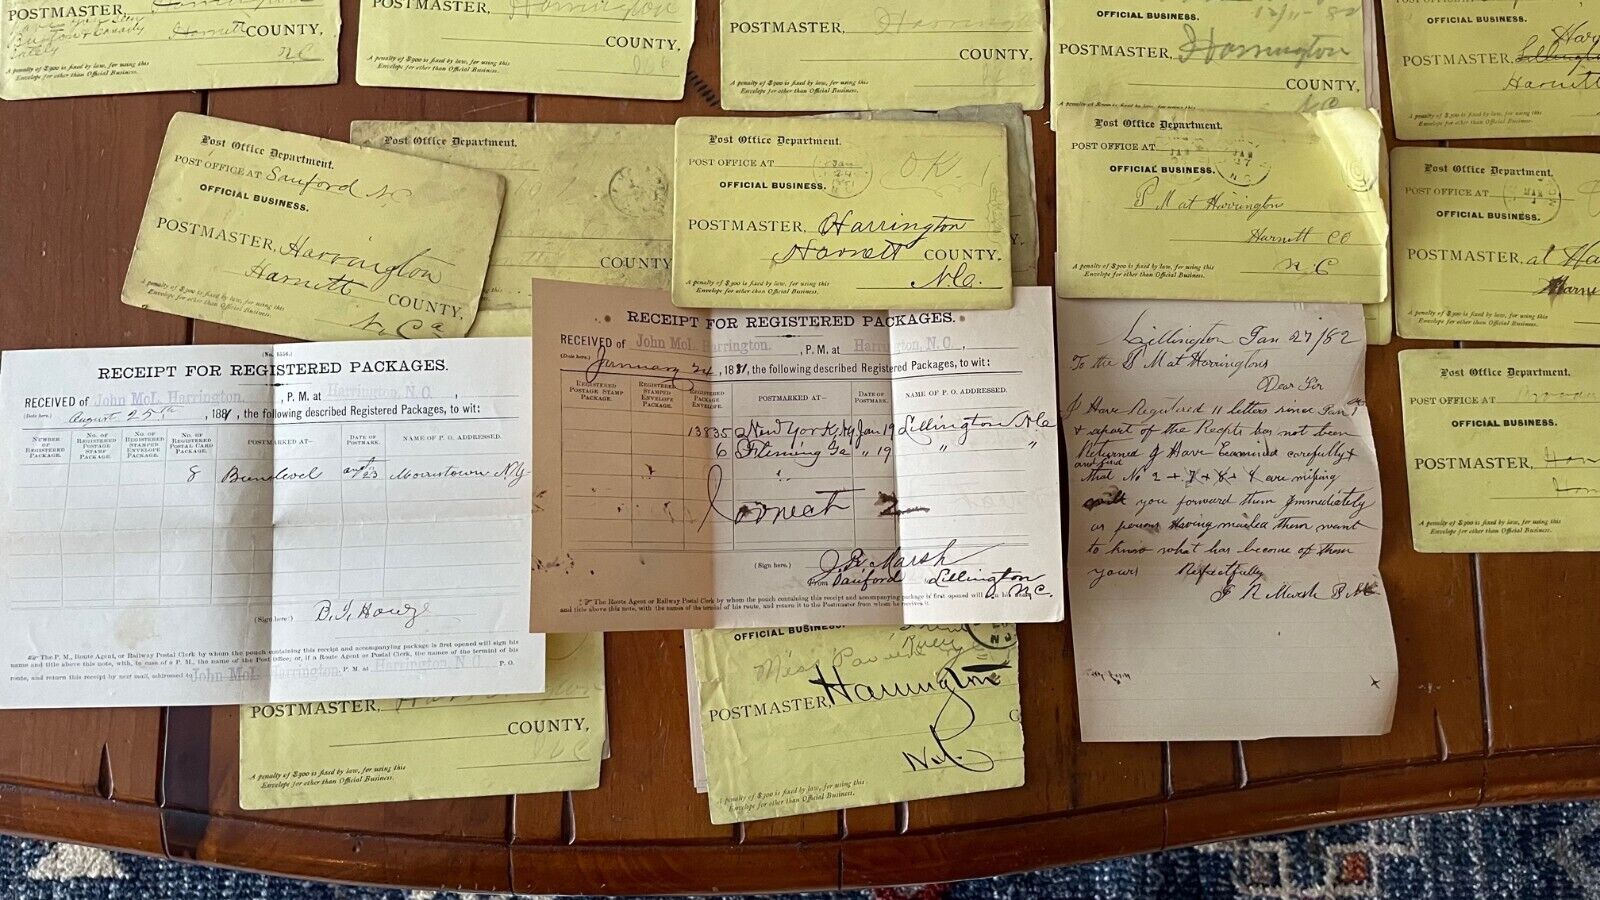 POSTMASTER,
Harnett COUNTY,
N.C
A penalty of $300 is fixed by law, for using this
Envelope for other than Official Business.
POSTMASTER, Harrington
COUNTY,
A penalty of $300 is fixed by law, for using this
Envelope for other than Official Business.
POSTMASTER, Harrington
COUNTY,
A penalty of $300 is fixed by law, for using this
Envelope for other than Official Business.
OFFICIAL BUSINESS.
POSTMASTER, Harrington
COUNTY,
N.C
A penalty of $300 is fixed by law, for using this
OFFICIAL BUSINESS.
POSTMASTER, Lillington
Harnett
A penalty of $300 is fixed by law, for using this
Envelope for other than Official Business.
Post Office Department.
POST OFFICE AT Sanford NC
OFFICIAL BUSINESS.
POSTMASTER, Harrington
Harnett COUNTY,
N.Ca
A penalty of $300 is fixed by law, for using this
Envelope for other than Official Business.
Post Office Department.
COUNTY,
Post Office Department.
POST OFFICE AT
JAN
24
OK.
OFFICIAL BUSINESS.
POSTMASTER, Harrington
Harnett COUNTY,
N.C.
A penalty of $300 is fixed by law, for using this
Envelope for other than Official Business.
Post Office Department.
POST OFFICE AT
JAN
27
OFFICIAL BUSINESS.
P M at Harrington
Harnett CO
N.C
A penalty of $300 is fixed by law, for using this
Envelope for other than Official Business.
Post Office Department.
POST OFFICE AT
MAR
OFFICIAL BUSINESS.
POSTMASTER, at
A penalty of $300 is fixed by law, for using this
Envelope for other than Official Business.
Post Office Department.
POST OFFICE AT
OFFICIAL BUSINESS.
POSTMASTER,
A penalty of $300 is fixed by law, for using this
Envelope for other than Official Business.
(No. 1556.)
RECEIPT FOR REGISTERED PACKAGES.
RECEIVED OF John McL. Harrington. , P. M. at Harrington, N. C. ,
(Date here.) August 25th, 1881, the following described Registered Packages, to wit:
NUMBER OF REGISTERED PACKAGE.
NO. OF REGISTERED POSTAGE STAMP PACKAGE.
NO. OF REGISTERED STAMPED ENVELOPE PACKAGE.
NO. OF REGISTERED POSTAL CARD PACKAGE.
POSTMARKED AT—
DATE OF POSTMARK.
NAME OF P. O. ADDRESSED.
8 Bunlevel aug 23 Morristown N.J.
(Sign here:)
☞ The P. M., Route Agent, or Railway Postal Clerk by whom the pouch containing this receipt and accompanying package is first opened will sign his
name and title above this note, with, in case of a P. M., the name of the Post Office; or, if a Route Agent or Postal Clerk, the names of the termini of his
route, and return this receipt by next mail, addressed to John McL. Harrington. , P. M. at Harrington, N. C. P. O.
RECEIPT FOR REGISTERED PACKAGES.
RECEIVED OF John McL. Harrington. , P. M. at Harrington, N. C. ,
(Date here.) January 24, 1881, the following described Registered Packages, to wit:
REGISTERED POSTAGE STAMP PACKAGE.
REGISTERED STAMPED ENVELOPE PACKAGE.
REGISTERED PACKAGE ENVELOPE.
POSTMARKED AT—
DATE OF POSTMARK.
NAME OF P. O. ADDRESSED.
13835 New York N.Y Jan 19 Lillington N.C
6 Fleming Ga " 19 " "
(Sign here.) J. R. Marsh
From Sanford Lillington
N.C.
☞ The Route Agent or Railway Postal Clerk by whom the pouch containing this receipt and accompanying package is first opened will sign his name
and title above this note, with the names of the termini of his route, and return it to the Postmaster from whom he receives it.
Lillington Jan 27/82
To the P M at Harringtons
Dear Sir
I Have Registered 11 letters since Jan 1st
& apart of the Recpts has not been
Returned I Have Examined carefully &
and find
that No 2 + 7 + 8 + 4 are missing
will you forward them Immediately
as persons Having mailed them want
to know what has become of them
yours Respectfully
J R Marsh P M
POSTMASTER,
COUNTY,
A penalty of $300 is fixed by law, for using this
Envelope for other than Official Business.
OFFICIAL BUSINESS.
POSTMASTER, Harrington
N.C.
A penalty of $300 is fixed by law, for using this
Envelope for other than Official Business.